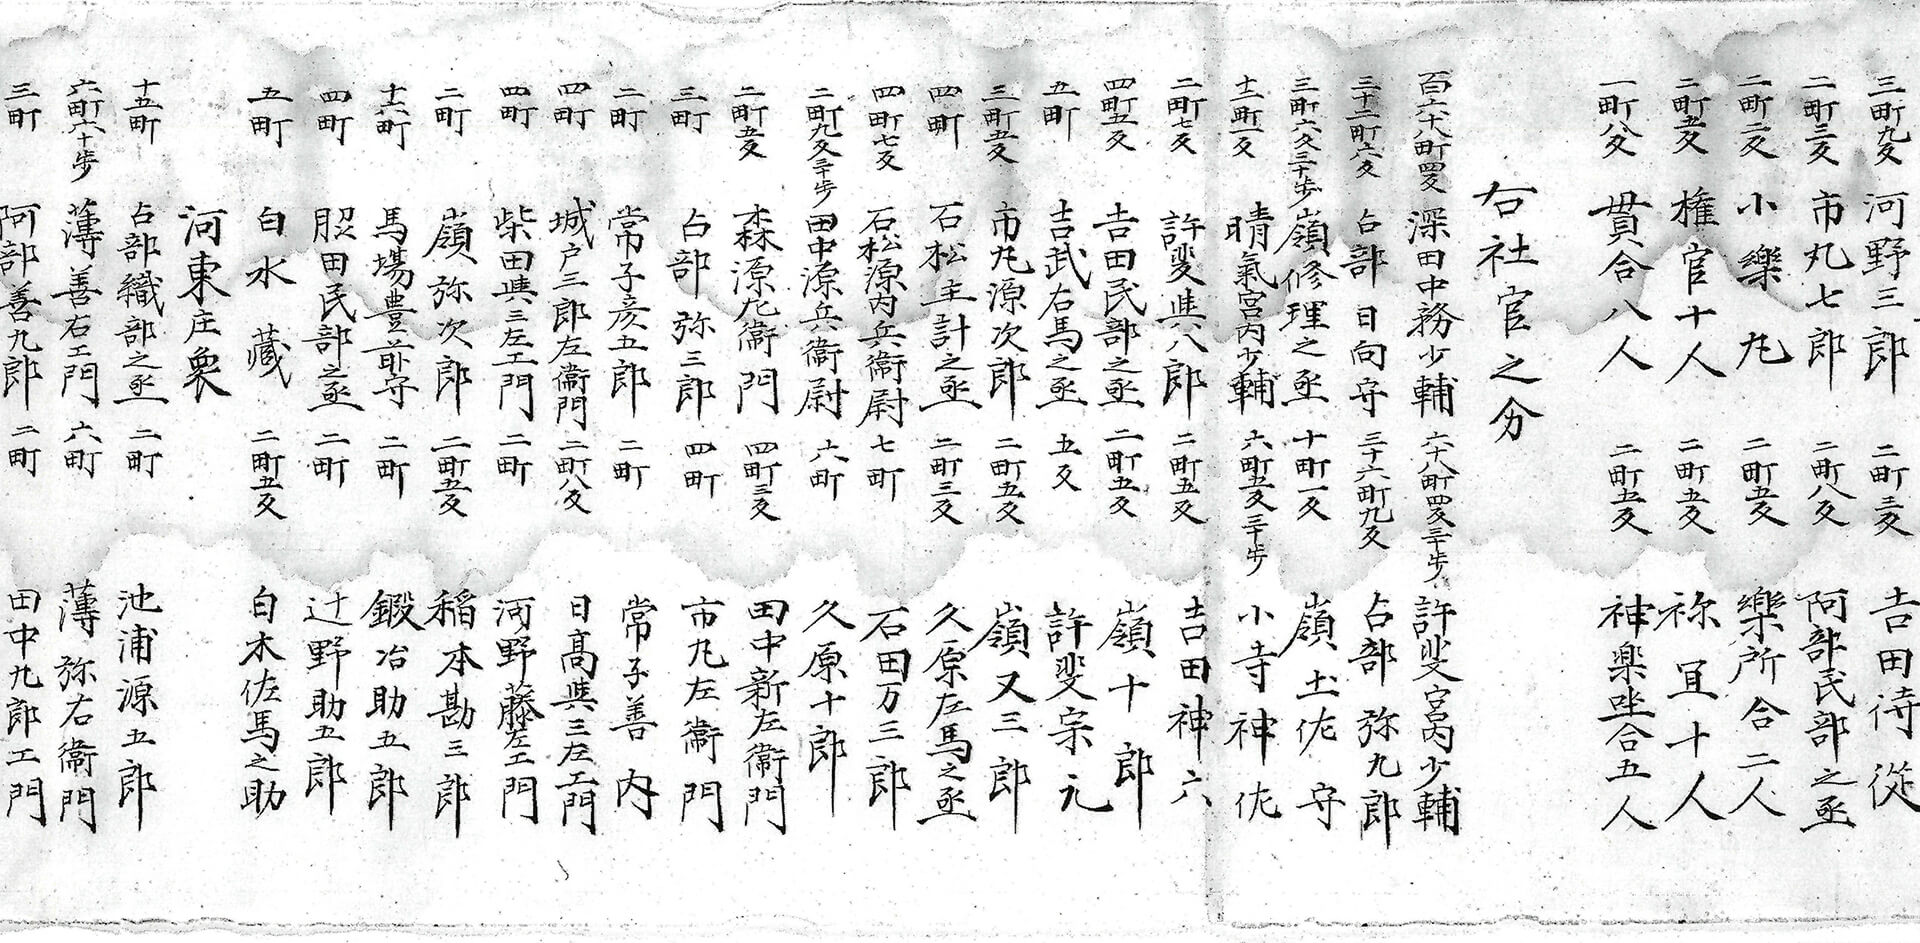 三町九反 河野三郎 二町三反 吉田侍従
二町三反 市丸七郎 二町八反 阿部民部之丞
二町二反 小樂丸 二町五反 樂所合二人
二町五反 権官十人 二町五反 祢宜十人
一町八反 貫合八人 二町五反 神楽座合五人
右社官之分
百六十八町四反 深田中務少輔 六十八町四反三十歩 許斐宮内少輔
三十二町六反 占部日向守 三十六町九反 占部弥九郎
三町六反三十歩 嶺修理之丞 十町一反 嶺土佐守
十二町一反 晴氣宮内少輔 六町五反三十歩 小寺神佐
二町七反 許斐與八郎 二町五反 吉田神六
四町五反 吉田民部之丞 二町五反 嶺十郎
五町 吉武右馬之丞 五反 許斐宗元
三町五反 市丸源次郎 二町五反 嶺又三郎
四町 石松主計之丞 二町三反 久原左馬之丞
四町七反 石松源内兵衛尉 七町 石田万三郎
二町九反三十歩 田中源兵衛尉 六町 久原十郎
二町五反 森源左衛門 四町三反 田中新左衛門
三町 占部弥三郎 四町 市丸左衛門
二町 常子彦五郎 二町 常子善内
四町 城戸三郎左衛門 二町八反 日高與三左エ門
四町 柴田與三左エ門 二町 河野藤左エ門
二町 嶺弥次郎 二町五反 稲本勘三郎
十六町 馬場豊前守 二町 鍛冶助五郎
四町 肥田民部之丞 二町 辻野助五郎
五町 白水蔵 二町五反 白木佐馬之助
河東庄衆
十五町 占部織部之丞 二町 池浦源五郎
六町六十歩 薄善右エ門 六町 薄弥右衛門
三町 阿部善九郎 二町 田中九郎エ門